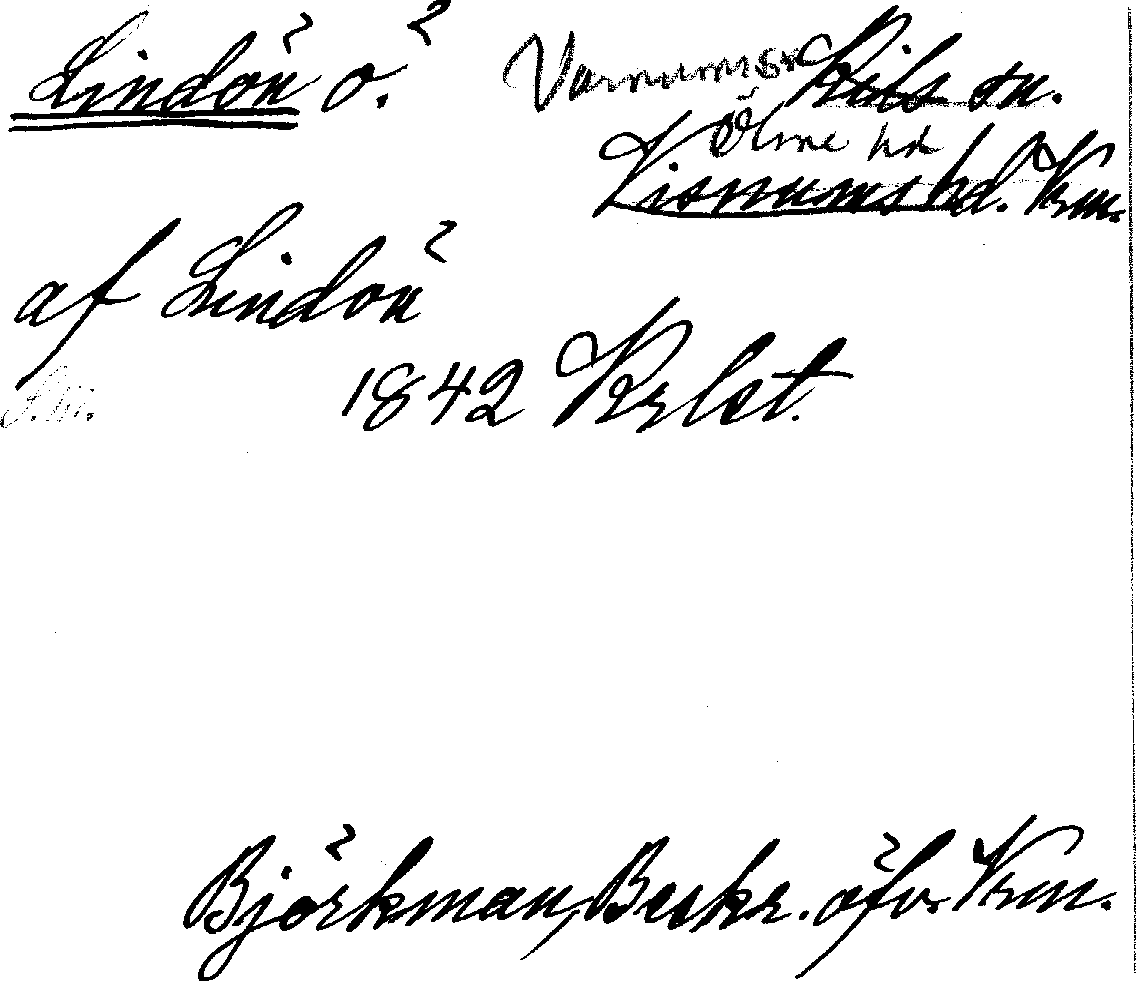 Lindön ö. Varnum sn Kils sn.
Ölme hd
Visnums hd. Vrm.
af Lindön
1842 Krlst.
Björkman, Beskr. öfv. Vrm.